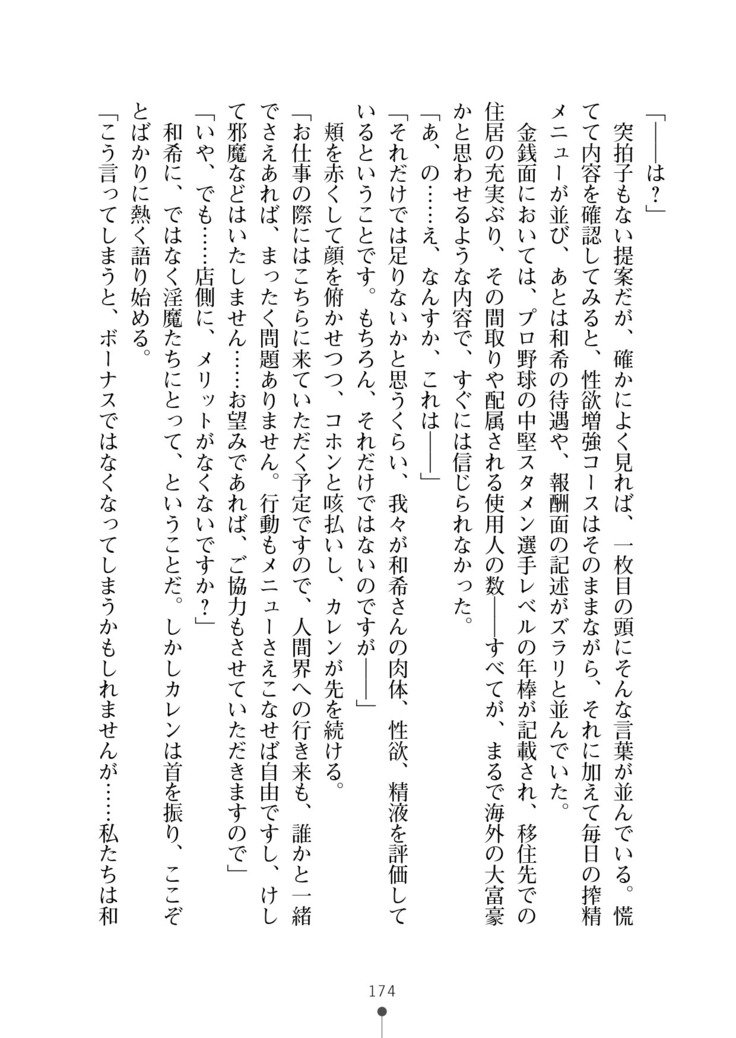 「――は？」
　突拍子もない提案だが、確かによく見れば、一枚目の頭にそんな言葉が並んでいる。慌
てて内容を確認してみると、性欲増強コースはそのままながら、それに加えて毎日の搾精
メニューが並び、あとは和希の待遇や、報酬面の記述がズラリと並んでいた。
　金銭面においては、プロ野球の中堅スタメン選手レベルの年棒が記載され、移住先での
住居の充実ぶり、その間取りや配属される使用人の数――すべてが、まるで海外の大富豪
かと思わせるような内容で、すぐには信じられなかった。
「あ、の……え、なんすか、これは――」
「それだけでは足りないかと思うくらい、我々が和希さんの肉体、性欲、精液を評価して
いるということです。もちろん、それだけではないのですが――」
　頬を赤くして顔を俯かせつつ、コホンと咳払いし、カレンが先を続ける。
「お仕事の際にはこちらに来ていただく予定ですので、人間界への行き来も、誰かと一緒
でさえあれば、まったく問題ありません。行動もメニューさえこなせば自由ですし、けし
て邪魔などはいたしません……お望みであれば、ご協力もさせていただきますので」
「いや、でも……店側に、メリットがなくないですか？」
　和希に、ではなく淫魔たちにとって、ということだ。しかしカレンは首を振り、ここぞ
とばかりに熱く語り始める。
「こう言ってしまうと、ボーナスではなくなってしまうかもしれませんが……私たちは和
174